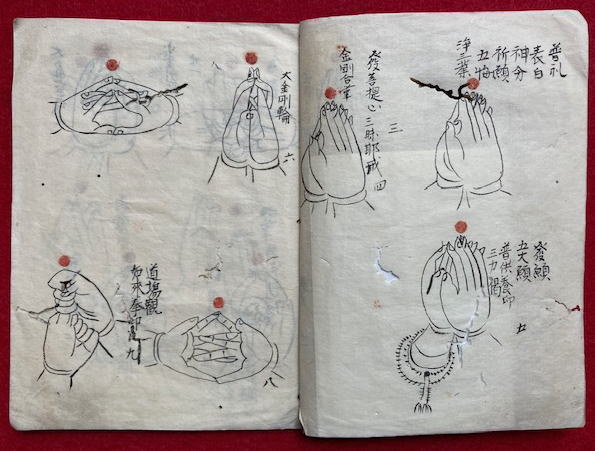 普礼
表白
神分
祈願
五悔
浄三業
三
發菩提心三昧耶戒 四
金剛合掌
發願
五大願
普供養印
三力偈
五
大金剛輪
六
道場觀
如來拳印
九
八